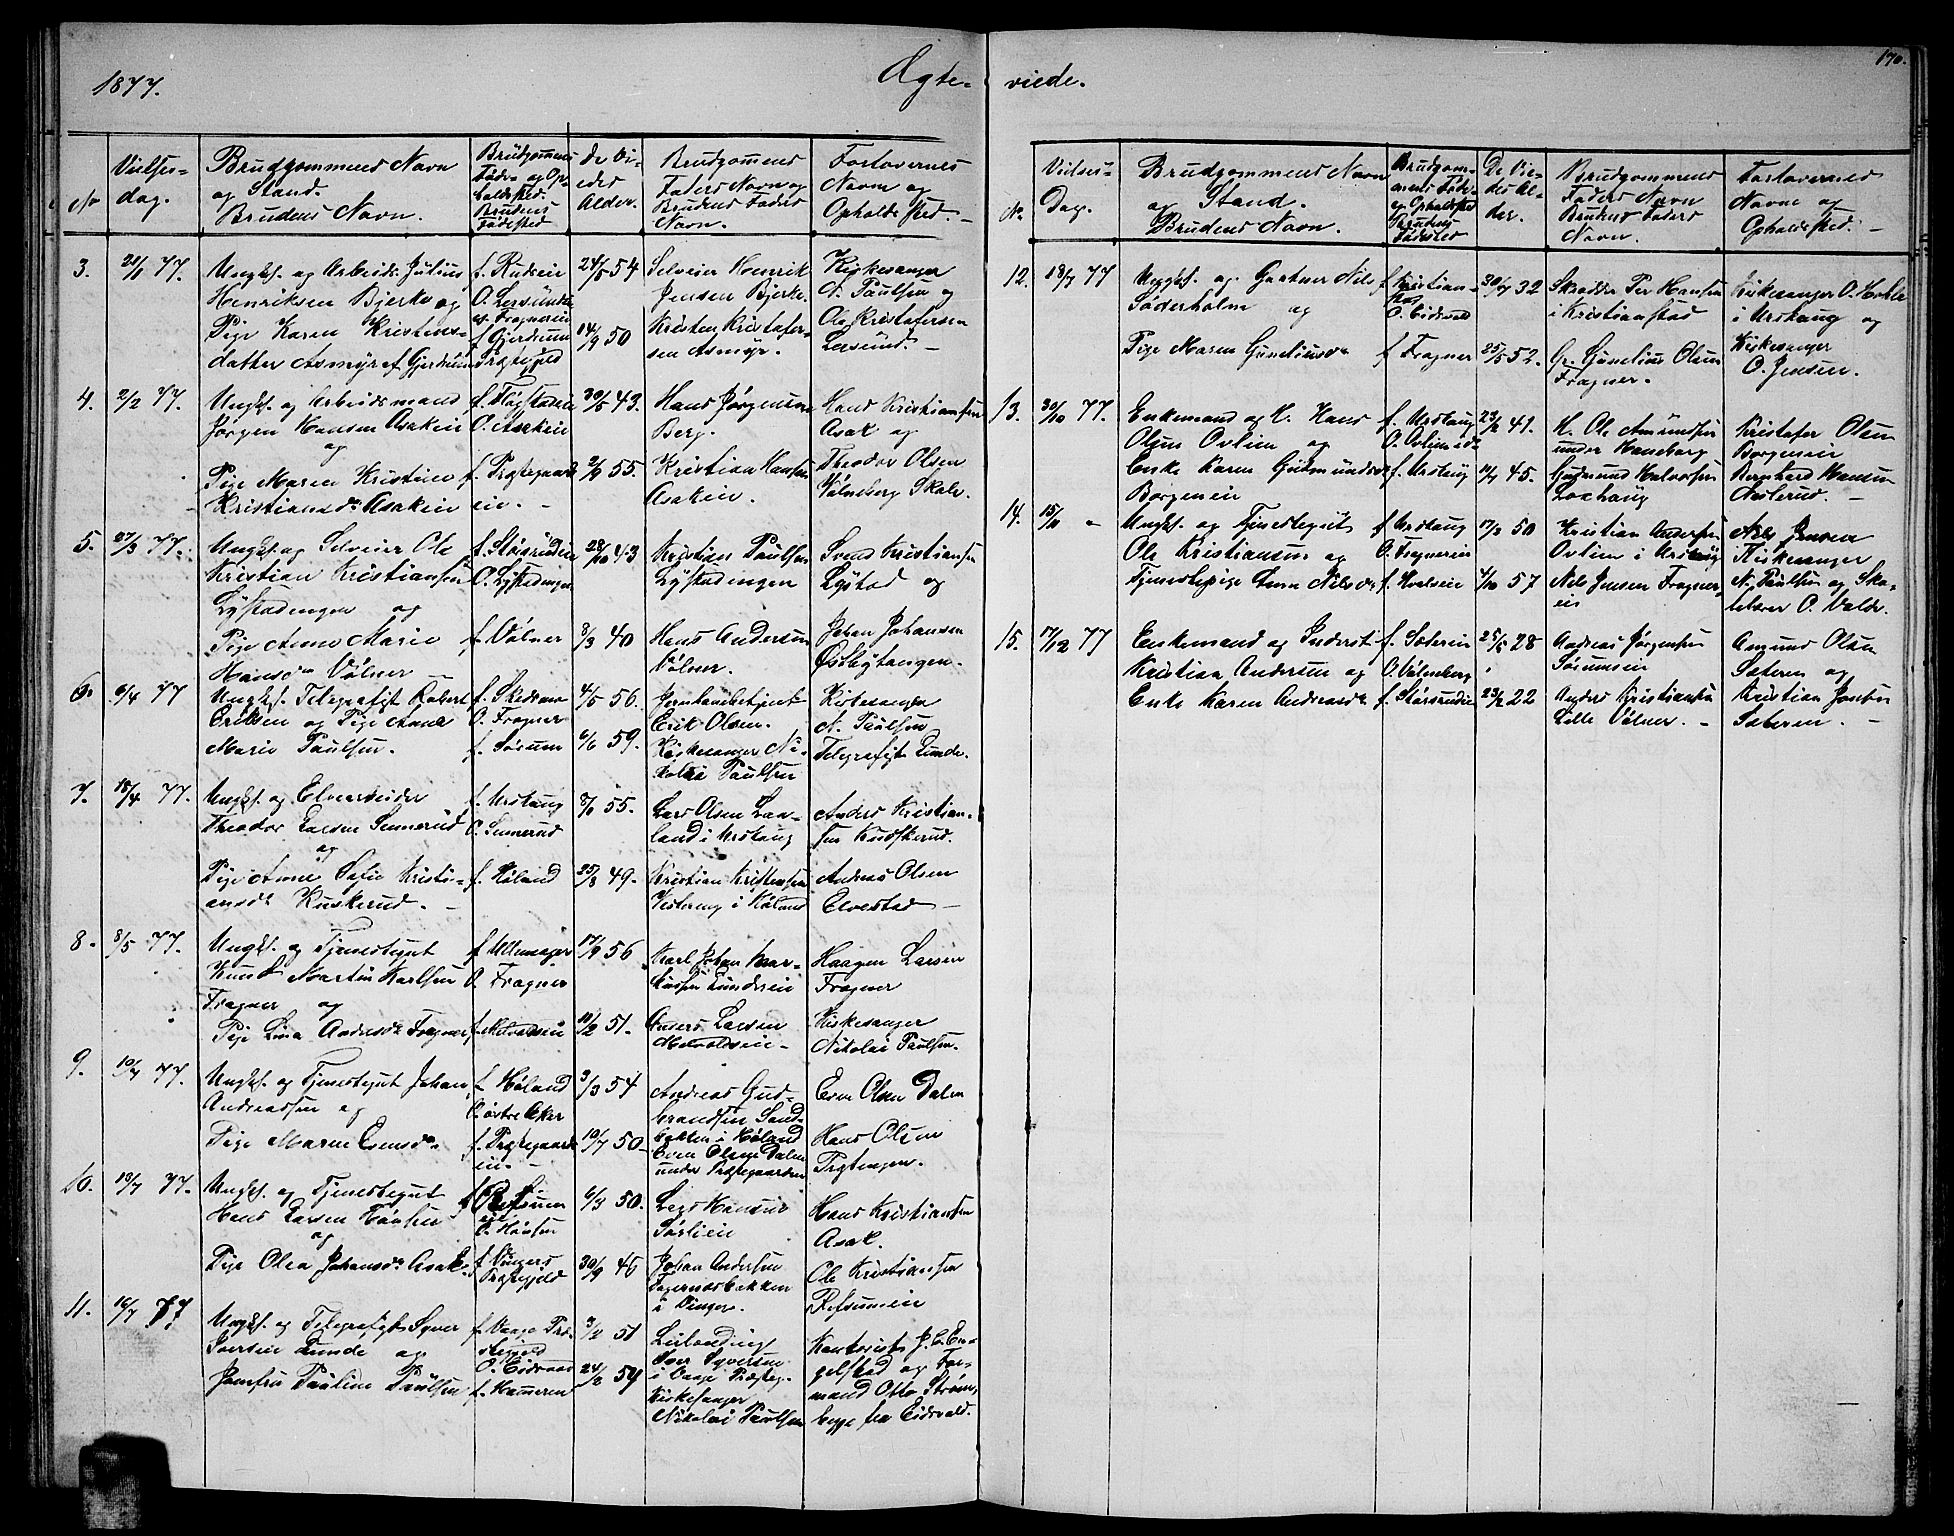 1877.
Ægte-
No
Vielses-
dag.
Brudgommens Navn
og Stand.
Brudens Navn.
Brudgommens
Føde- og Op-
holdssted.
Brudens
Fødested
de Vi-
edes
Alder.
Brudgommens
Faders Navn og
Brudens Faders
Navn.
Forlovernes
Navn og
Opholdssted. -
3.
21/1 77.
Ungk. og Arbeids. Julius
Henriksen Bjerke og
Pige Karen Kristens-
datter Asmyr af Gjerdrum
f. Rudseie
O. Lersund
f. Gjerdrum
Præstegjeld
24/5 54
14/9 50
Selveier Henrik
Jensen Bjerke.
Kristen Kristofer-
sen Asmyr.
Kirkesanger
N. Paulsen og
Ole Kristofersen
Lersund. -
4.
2/2 77.
Ungk. og Arbeidsmand
Jørgen Hansen Asakeie
og
Pige Maren Kristine
Kristiansdr Asakeie
O. Asakeie
f. Præstegaards
eie. -
30/5 43.
2/9 55.
Hans Jørgensen
Berg.
Kristian Hansen
Asakeie.
Hans Kristiansen
Asak og
Theodor Olsen
Vølneberg Skole.
5.
27/3 77.
Ungk. og Selveier Ole
Kristian Kristiansen
Lystadengen og
Pige Anne Marie
Hansdr Vølner
f. Størsrudeie
O. Lystadengen
f. Vølner
28/10 43
3/3 40
Kristian Paulsen
Lystadengen
Hans Andersen
Vølner.
Svend Kristiansen
Lystad og
Johan Johansen
Østbytangen.
6.
6/4 77
Ungk. Telegrafist Robert
Eriksen og Pige Anne
Marie Paulsen.
f. Skedsmo
O. Frogner
f. Sørum
4/5 56.
6/6 59.
Jernbanebetjent
Erik Olsen.
Kirkesanger Ni-
kolai Paulsen
Kirkesanger
N. Paulsen
Telegrafist Lunde.
7.
18/4 77.
Ungk. og Elvearbeider
Theodor Larsen Sennerud
og
Pige Anne Sofie Kristi-
ansdr Kuskerud. -
f. Urskoug
O. Sennerud
f. Høland
8/1 55.
25/8 49.
Lars Olsen Lan-
land i Urskoug
Kristian Kristensen
i Høland
Anders Kristian-
sen Kuskerud.
Andreas Olsen
Elvestad -
8.
8/5 77.
Ungk. og Tjenestegut
Knud Martin Karlsen
Frogner og
Pige Lina Andersdr Frogner
f. Ullensager
O. Frogner
f. Melvoldseie
17/9 56
11/2 51.
Karl Johan Mar-
kussen Lundereie
Anders Larsen
Melvoldseie -
Haagen Larsen
Frogner
Kirkesanger
Nikolai Paulsen.
9.
10/7 77.
Ungk. og Tjenestegut Johan
Andreassen og
Pige Maren Evensdr
f. Høland
O. østre Aker
f. Præstegaards
eie. -
3/3 54
10/7 50
Andreas Gud-
brandsen Sand-
bakken i Høland
Even Olsen Dalen
under Præstegaarden
Even Olsen Dalen
Hans Olsen
10.
13/7 77.
Ungk. og Tjenestegut
Hans Larsen Hønsen
og
Pige Olea Johansdr Asak
f. Refsum
eie
O. Hønsen
f. Vingers
Præstegjeld
6/3 50.
30/9 46
Lars Hansen
Sørlieie
Johan Andersen
Tagernæsbakken
i Vinger.
Hans Kristiansen
Asak.
Ole Kristiansen
Refsumeie
11.
16/7 77
Ungk. og Telegrafist Syver
Iversen Lunde og
Jomfru Pauline Paulsen
f. Vaage Præ-
stegjeld
O. Eidsvold
f. Hammeren
3/2 51
24/2 54
Iver Syversen
i Vaage Præsteg.
Kirkesanger
Nikolai Paulsen
Kontorist J. C. En-
gelstad og For-
mand Otto Strøm,
begge fra Eidsvold.
170.
viede.
No.
Vielses-
Dag.
Brudgommens Navn
og Stand.
Brudens Navn.
Brudgom-
mens Føde-
og Opholdssted
Brudens
Fødested
De Vie-
des Al-
der.
Brudgommens
Faders Navn
Brudens Faders
Navn.
Forlovernes
Navne og
Opholdssted. -
12.
18/7 77
Ungk. og Gartner Nils
Søderholm og
Pige Maren Guneliusdr
f. Kristian-
stad
O. Eidsvold
f. Frogner
30/4 32
25/5 52.
Skrædder Per Hansen
i Kristianstad
Gr. Gunelius Olsen
Frogner.
Kirkesanger O.
i Urskoug og
Kirkesanger
O. Jensen.
13.
30/10 77.
Enkemand og H. Hans
Olsen Ovlien og
Enke Karen Gudmundsdr
Borgeneie
f. Urskoug
f. Urskoug
23/2 41.
14/4 45.
H. Ole Amundsen
under Haneborg
Gudmund Halvorsen
Loshaug
Kristofer Olsen
Borgeneie
Bernhard Hansen
Aslerud. -
14.
15/11 -
Ungk. og Tjenestegut
Ole Kristiansen og
Tjenestepige Lina Nilsdr
f. Urskoug
O. Frognereie
f. Hvalseie
17/3 50
4/10 57
Kristian Andersen
Ovlien i Urskoug
Nils Jensen Frogner-
eie
Nils Jensen
Kirkesanger
N. Paulsen og Sko-
lelærer O. Valde.
15.
17/12 77
Enkemand og Inderst
Kristian Andersen og
Enke Karen Andersdr
f. Sætereie
O. Vølneberg
f. Størsrudeie
25/5 28
23/2 22
Andreas Jørgensen
Sørumseie
Anders Kristiansen
Lille Vølner. -
Amund Olsen
Sæteren og
Kristian Jonsen
Sæteren. -